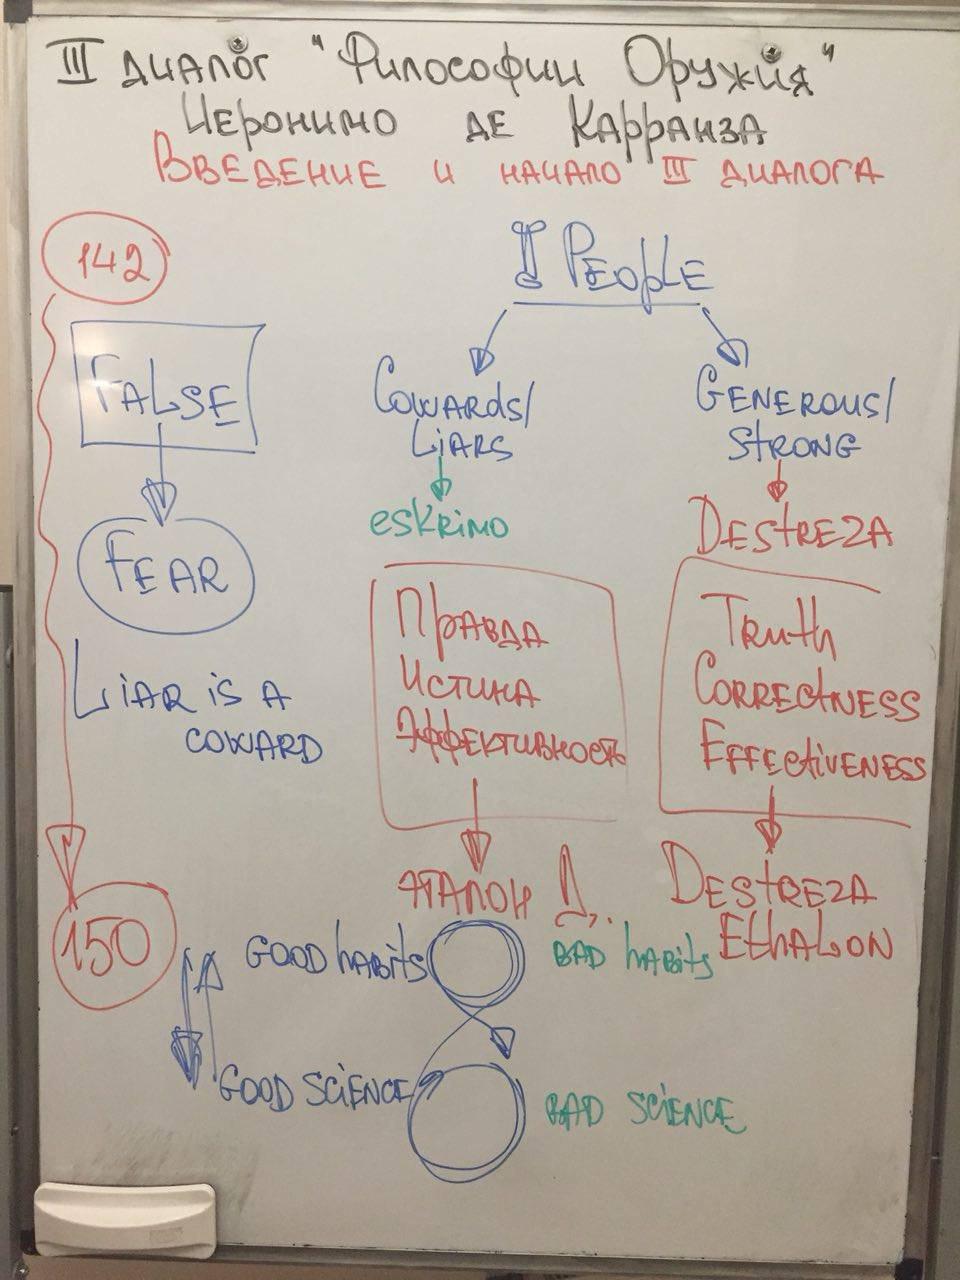 III ДИАЛОГ "ФИЛОСОФИИ ОРУЖИЯ"
ИЕРОНИМО ДЕ КАРРАНЗА
ВВЕДЕНИЕ И НАЧАЛО III ДИАЛОГА
142
PEOPLE
FALSE
COWARDS/
LIARS
GENEROUS/
STRONG
FEAR
eskrimo
DESTREZA
ПРАВДА
ИСТИНА
ЭФФЕКТИВНОСТЬ
TRUTH
CORRECTNESS
EFFECTIVENESS
LIAR IS A
COWARD
ЭТАЛОН Д.
DESTREZA
ETHALON
150
GOOD HABITS
BAD HABITS
GOOD SCIENCE
BAD SCIENCE